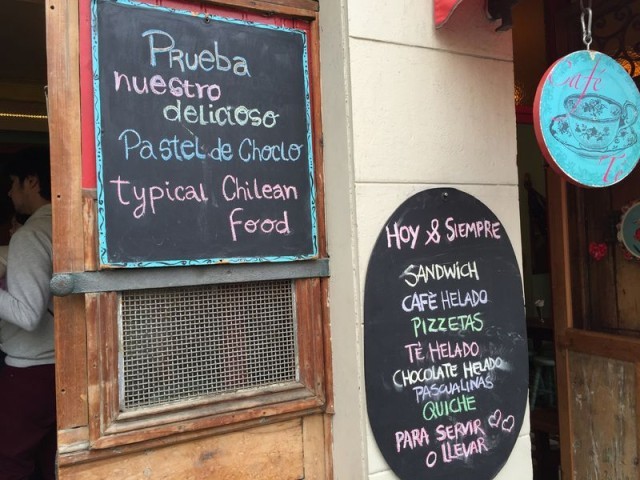 Prueba
nuestro
delicioso
Pastel de Choclo
typical Chilean
food
HOY & SIEMPRE
SANDWICH
CAFÈ HELADO
PIZZETAS
TÈ HELADO
CHOCOLATE HELADO
PASCUALINAS
QUICHE
PARA SERVIR
O LLEVAR
Café
Té